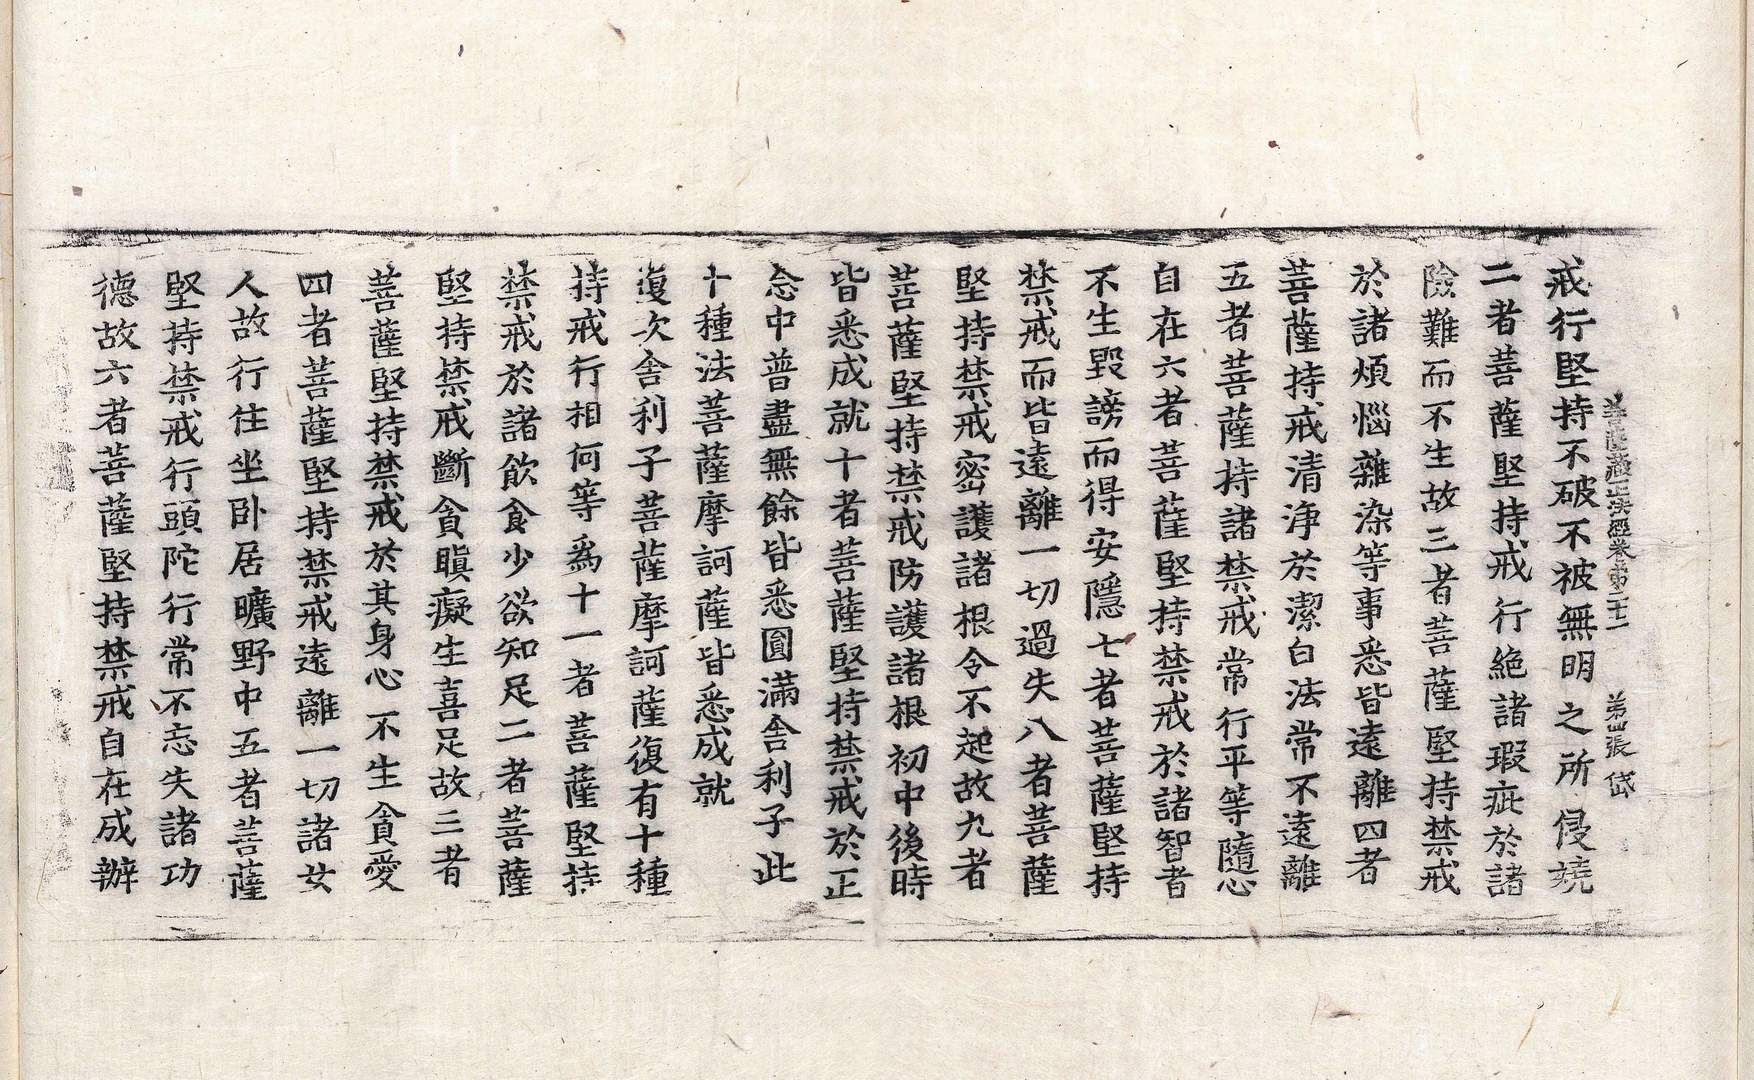 菩薩藏正法經卷第二十一 第四張 岱
戒行堅持不破不被無明之所侵嬈
二者菩薩堅持戒行絶諸瑕疵於諸
險難而不生故三者菩薩堅持禁戒
於諸煩惱雜染等事悉皆遠離四者
菩薩持戒清淨於潔白法常不遠離
五者菩薩持諸禁戒常行平等隨心
自在六者菩薩堅持禁戒於諸智者
不生毀謗而得安隱七者菩薩堅持
禁戒而皆遠離一切過失八者菩薩
堅持禁戒密護諸根令不起故九者
菩薩堅持禁戒防護諸根初中後時
皆悉成就十者菩薩堅持禁戒於正
念中普盡無餘皆悉圓滿舍利子此
十種法菩薩摩訶薩皆悉成就
復次舍利子菩薩摩訶薩復有十種
持戒行相何等爲十一者菩薩堅持
禁戒於諸飲食少欲知足二者菩薩
堅持禁戒斷貪瞋癡生喜足故三者
菩薩堅持禁戒於其身心不生貪愛
四者菩薩堅持禁戒遠離一切諸女
人故行住坐卧居曠野中五者菩薩
堅持禁戒行頭陀行常不忘失諸功
德故六者菩薩堅持禁戒自在成辦